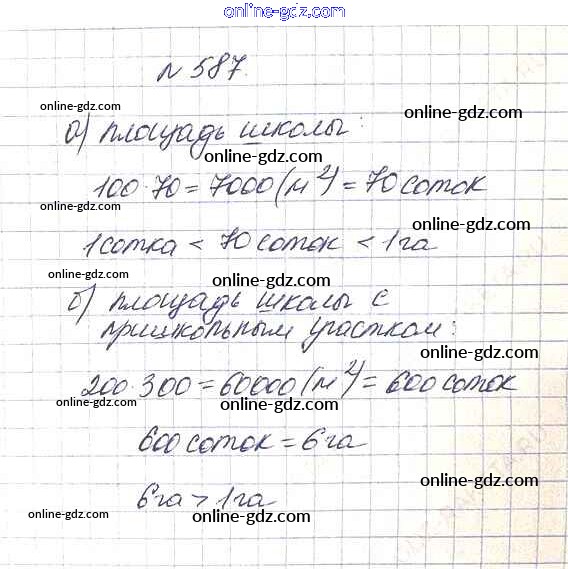 online-gdz.com
№ 587.
online-gdz.com online-gdz.com
а) площадь школы:
online-gdz.com
100·70=7000(м²)=70 соток
online-gdz.com online-gdz.com
1 сотка < 70 соток < 1 га
online-gdz.com online-gdz.com
б) площадь школы с
online-gdz.com
пришкольным участком:
online-gdz.com online-gdz.com
200·300=60000(м²)=600 соток
online-gdz.com online-gdz.com
600 соток = 6 га
online-gdz.com
6 га > 1 га
online-gdz.com online-gdz.com online-gdz.com